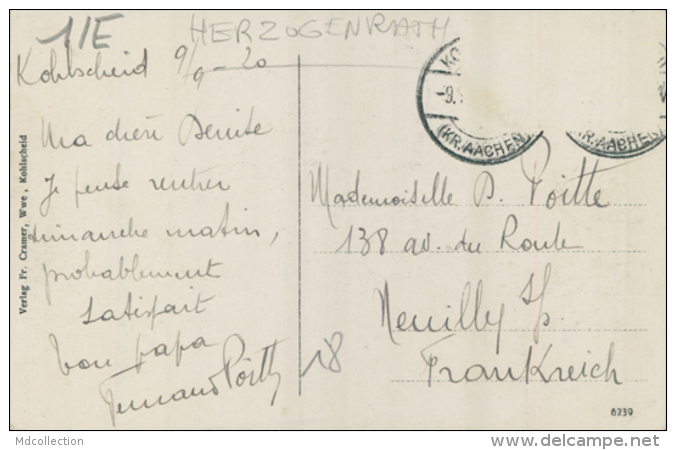 11E HERZOGENRATH
Kohlscheid 9/9-20
Ma chère Denise
Je pense rentrer
dimanche matin,
probablement
satisfait
bon papa
Fernand Poitte
Mademoiselle D. Poitte
138 av. du Roule
Neuilly s/s
Frankreich
18
KO
-9.
(KR.AACHEN)
(KR.AACHEN)
Verlag Fr. Cramer, Wwe, Kohlscheid
6239
Mdcollection
www.delcampe.net